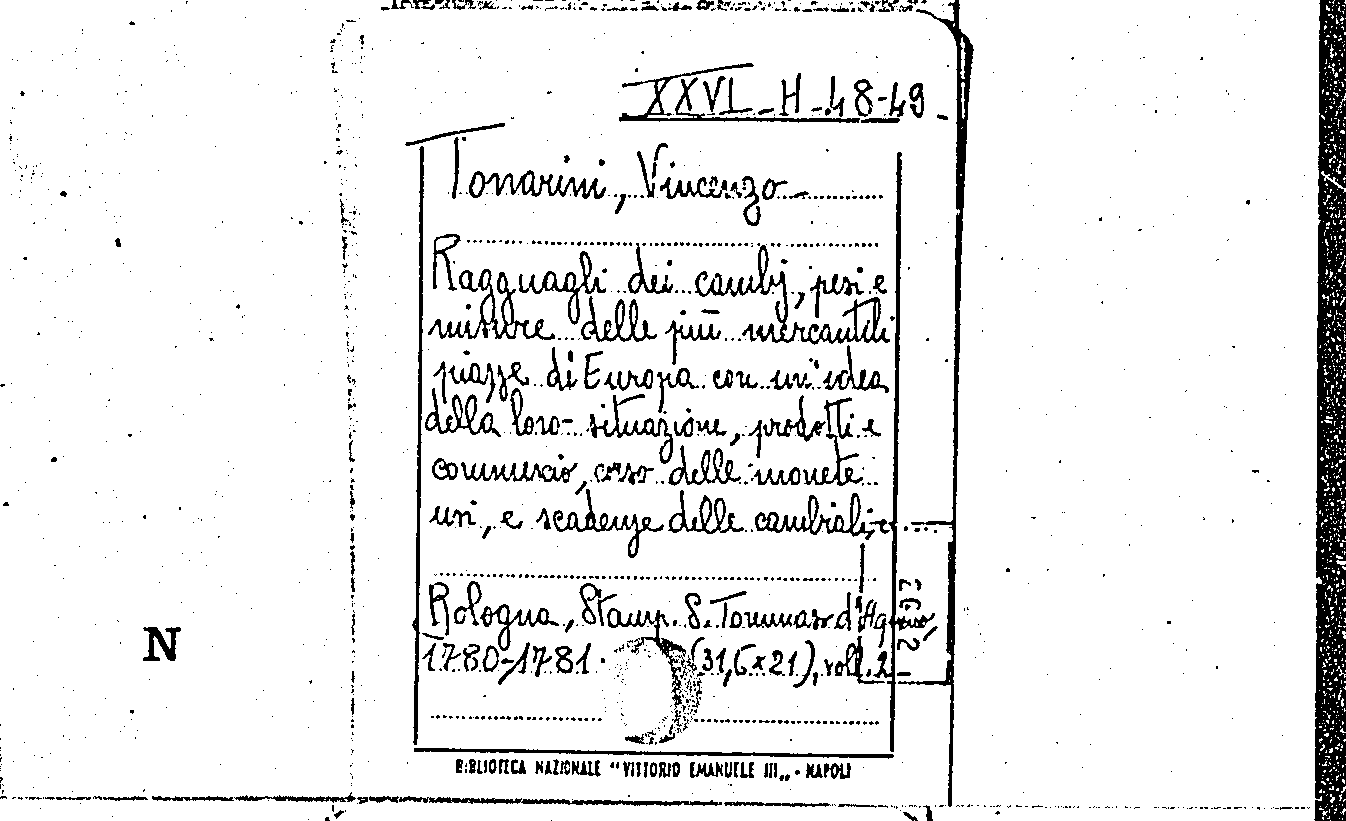 XXVI - H - 48-49
Tonarini, Vincenzo
Ragguagli dei cambj, pesi e
misure delle più mercantili
piazze di Europa con un'idea
della loro situazione, prodotti e
commercio, corso delle monete
usi, e scadenze delle cambiali, ...
Bologna, Stamp. S. Tommaso d'Aquino,
1780-1781. (31,6 x 21), voll. 2
BIBLIOTECA NAZIONALE "VITTORIO EMANUELE III„ - NAPOLI
N